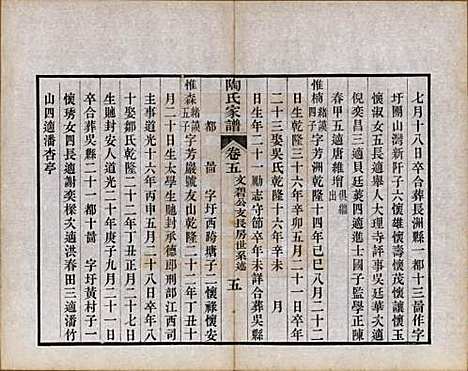 七月十八日卒合葬長洲縣 都十三啚作字
圩團山灣新阡子六懷雄懷壽懷茂懷讓懷玉
懷淑女五長適舉人大理寺評事吳廷華次適
倪奕昌三適貝廷葵四適進士國子監學正陳
春甲五適唐維增俱繼出
惟楠緒議四子字芳洲乾隆十四年己巳八月二十二
日生乾隆三十六年辛卯五月二十日卒年
二十三娶吳氏乾隆十六年辛未 月
日生年二十一勵志守節卒年未詳合葬吳縣
陶氏家譜 卷五 文碧公支長房世系述 五
都 啚 字圩西跨塘子二懷祿懷安
惟森緒議五子字芳巖號友雲乾隆二十二年丁丑十
月二十日生太學生馳封承德郎刑部江西司
主事道光十六年丙申五月二十八日卒年八
十娶鄒氏乾隆二十二年丁丑正月二十七日
生馳封安人道光二十年庚子九月二十日
卒合葬吳縣一都十啚 字圩黃村子一
懷琇女四長適謝奕樑次適洪春田三適潘竹
山四適潘杏亭